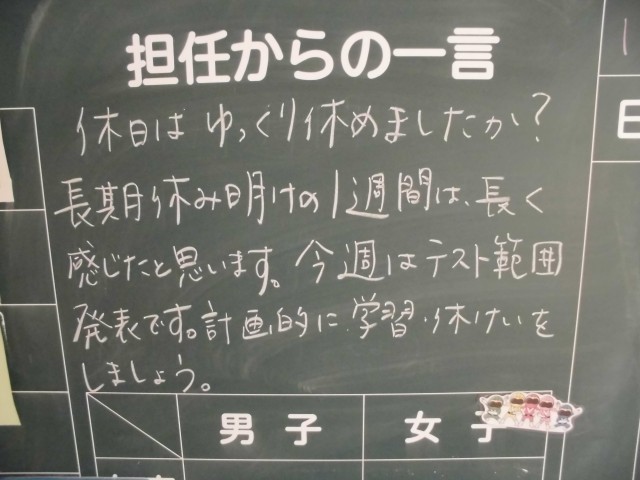 担任からの一言
休日は ゆっくり休めましたか?
長期休み明けの1週間は、長く
感じたと思います。今週はテスト範囲
発表です。計画的に学習・休けいを
しましょう。
男子 女子
日